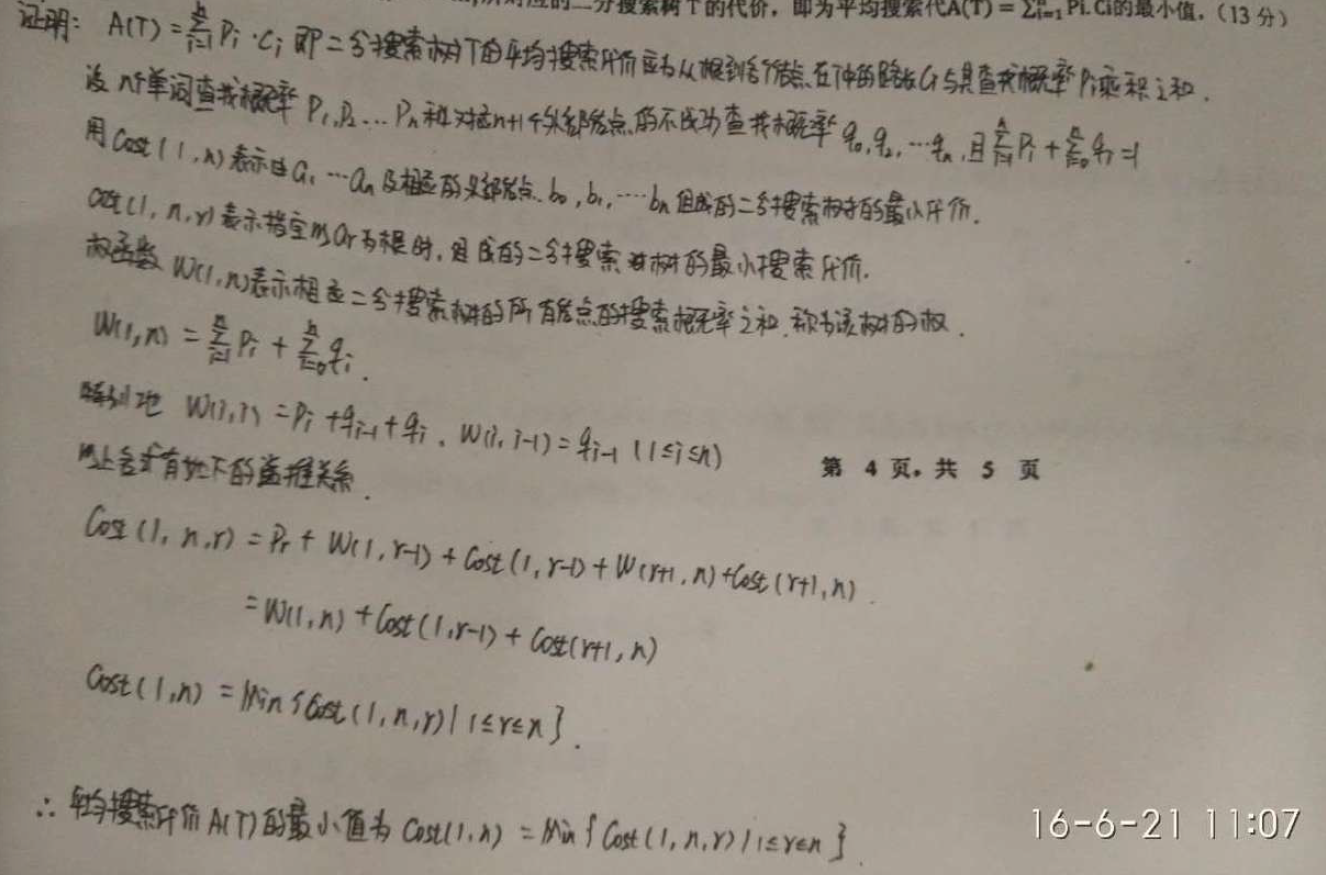 分搜索树T的代价，即为平均搜索代A(T)=∑ⁿᵢ₌₁Pi.Ci的最小值.（13分）
证明: A(T)=∑ⁿᵢ₌₁Pi·Ci 即二分搜索树T的平均搜索代价应为从根到各个结点在T中的路长Ci与其查找概率Pi乘积之和.
设n个单词查找概率P₁,P₂...Pₙ和对应n+1个外部结点的不成功查找概率q₀,q₂,...qₙ,且∑ⁿᵢ₌₁Pi+∑ⁿᵢ₌₀qi=1
用Cost(1,n)表示由a₁...aₙ及相应的外部结点b₀,b₁,...bₙ组成的二分搜索树的最小代价.
cost(1,n,r)表示指定以ar为根时,组成的二分搜索树的最小搜索代价.
权函数W(1,n)表示相应二分搜索树的所有结点的搜索概率之和,称为该树的权.
W(1,n)=∑ⁿᵢ₌₁Pi+∑ⁿᵢ₌₀qi.
特别地 W(i,i)=Pi+qi-1+qi, W(i,i-1)=qi-1 (1≤i≤n)
以上各式有如下的递推关系.
第 4 页，共 5 页
Cost(1,n,r)=Pr+W(1,r-1)+Cost(1,r-1)+W(r+1,n)+Cost(r+1,n).
=W(1,n)+Cost(1,r-1)+Cost(r+1,n)
Cost(1,n)=Min{Cost(1,n,r)|1≤r≤n}.
∴平均搜索代价A(T)的最小值为Cost(1,n)=Min{Cost(1,n,r)|1≤r≤n}.
16-6-21 11:07